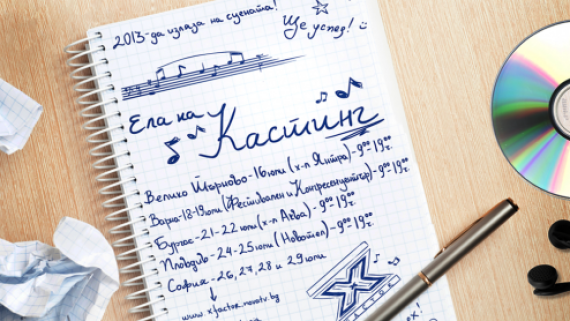 2013-да изляза на сцената!
Ще успея! :)
Ела на
Кастинг
Велико Търново - 16 юли (х-л Янтра) - 9⁰⁰ - 19ч.⁰⁰
Варна - 18-19 юли (Фестивален и Конгресен център) - 9⁰⁰ - 19ч.⁰⁰
Бургас - 21-22 юли (х-л Аква) - 9⁰⁰ - 19⁰⁰
Пловдив - 24-25 юли (Новотел) - 9⁰⁰ - 19ч.⁰⁰
София - 26, 27, 28 и 29 юли
www.xfactor.novatv.bg
X
FACTOR